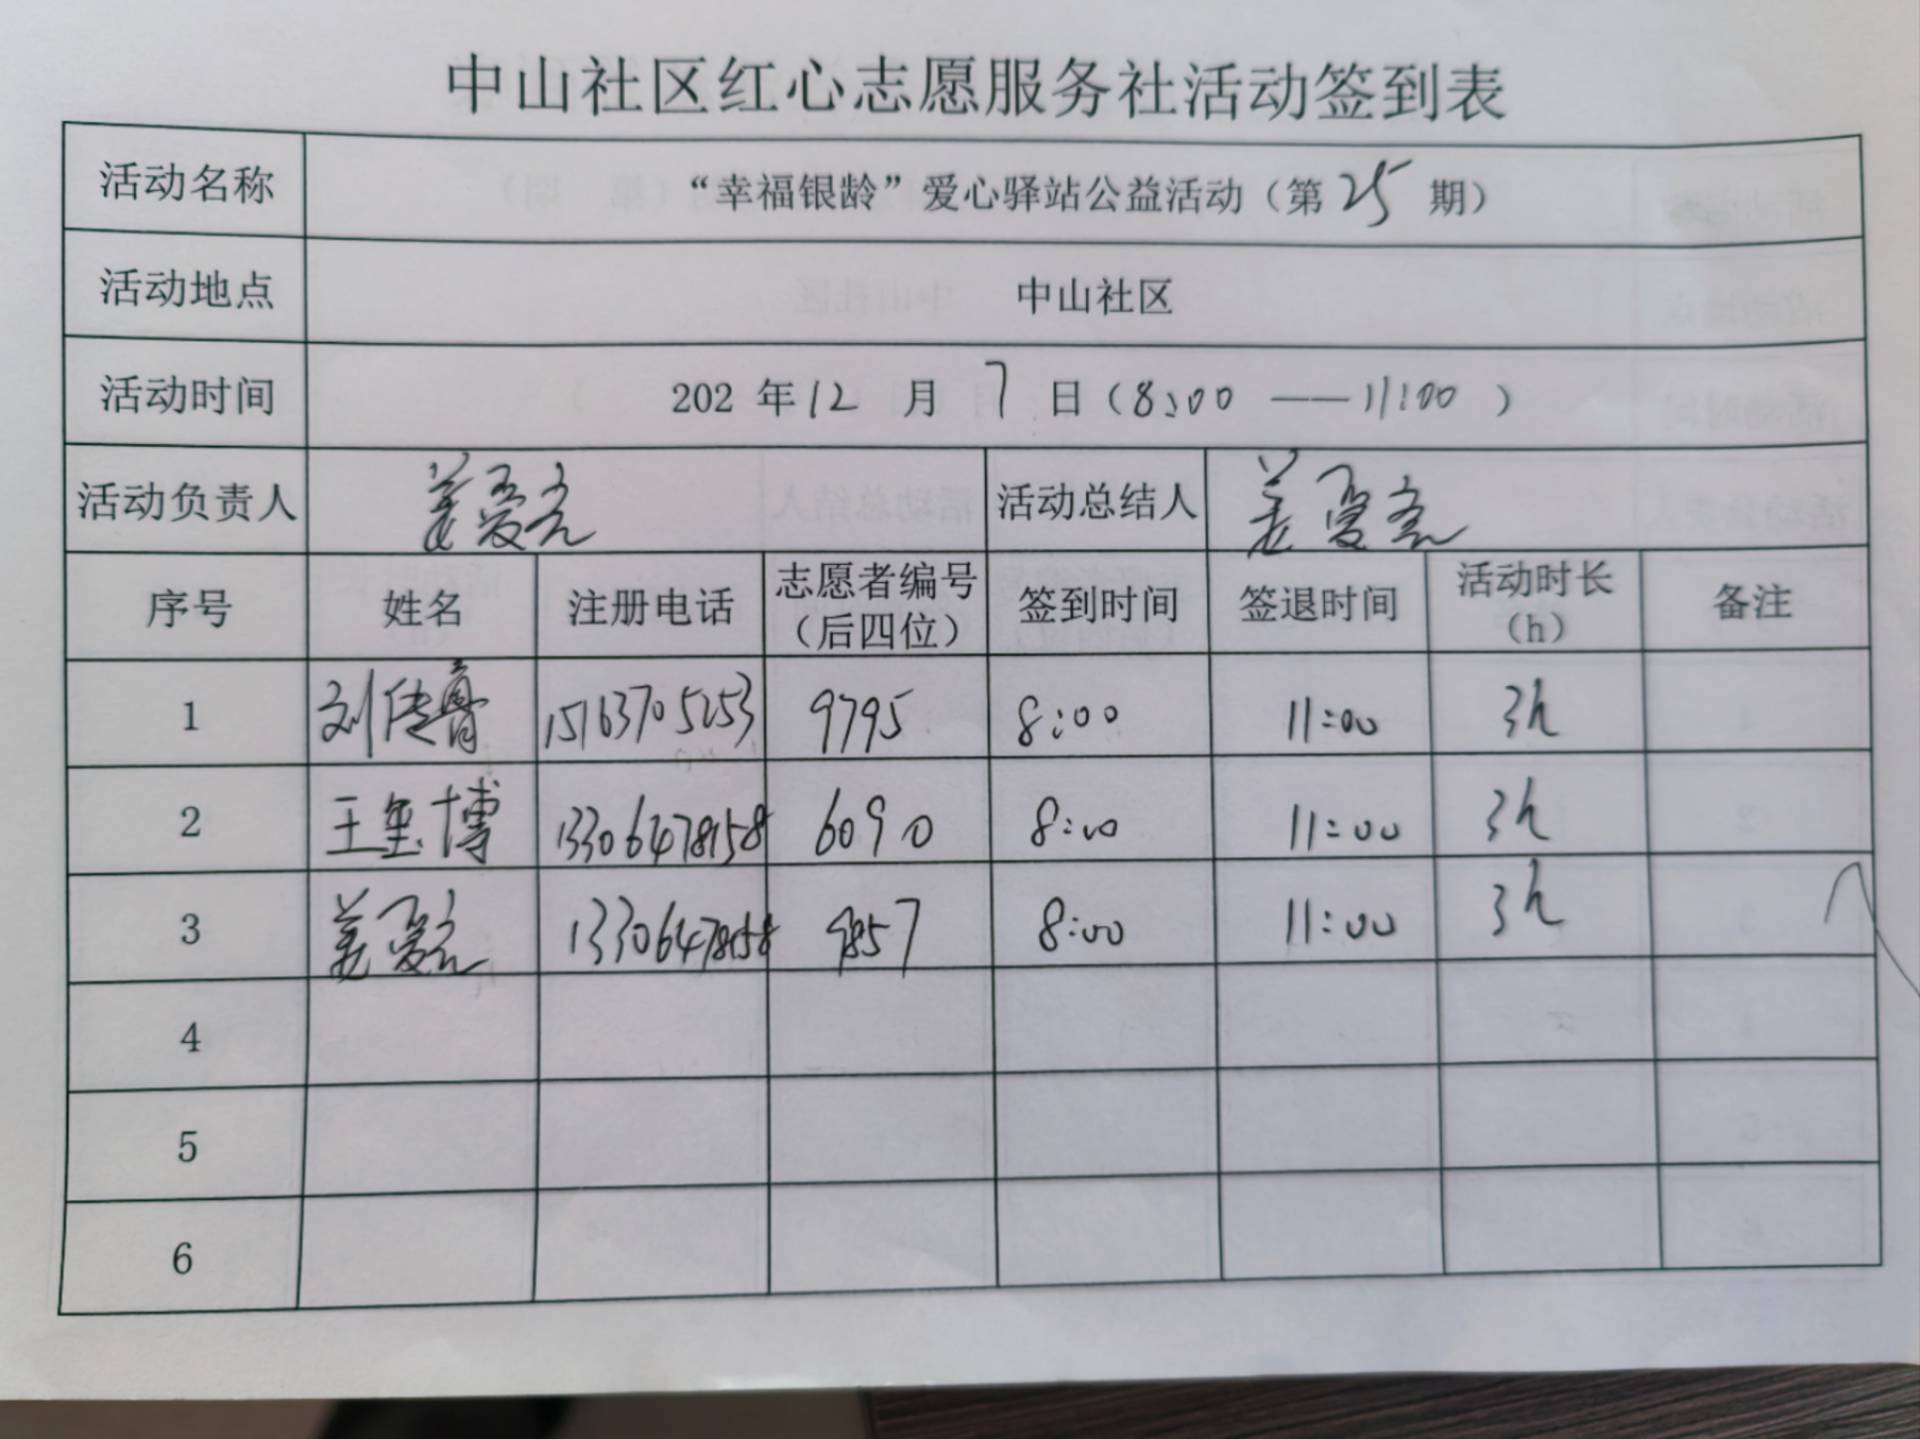 中山社区红心志愿服务社活动签到表
活动名称 “幸福银龄”爱心驿站公益活动（第 25 期）
活动地点 中山社区
活动时间 202 年 12 月 7 日（8:00 —— 11:00 ）
活动负责人 姜爱 活动总结人 姜爱
序号 姓名 注册电话 志愿者编号（后四位） 签到时间 签退时间 活动时长（h） 备注
1 刘传 15163705253 9795 8:00 11:00 3h
2 王玺博 13306478158 6090 8:00 11:00 3h
3 姜爱 13306478158 9857 8:00 11:00 3h
4
5
6